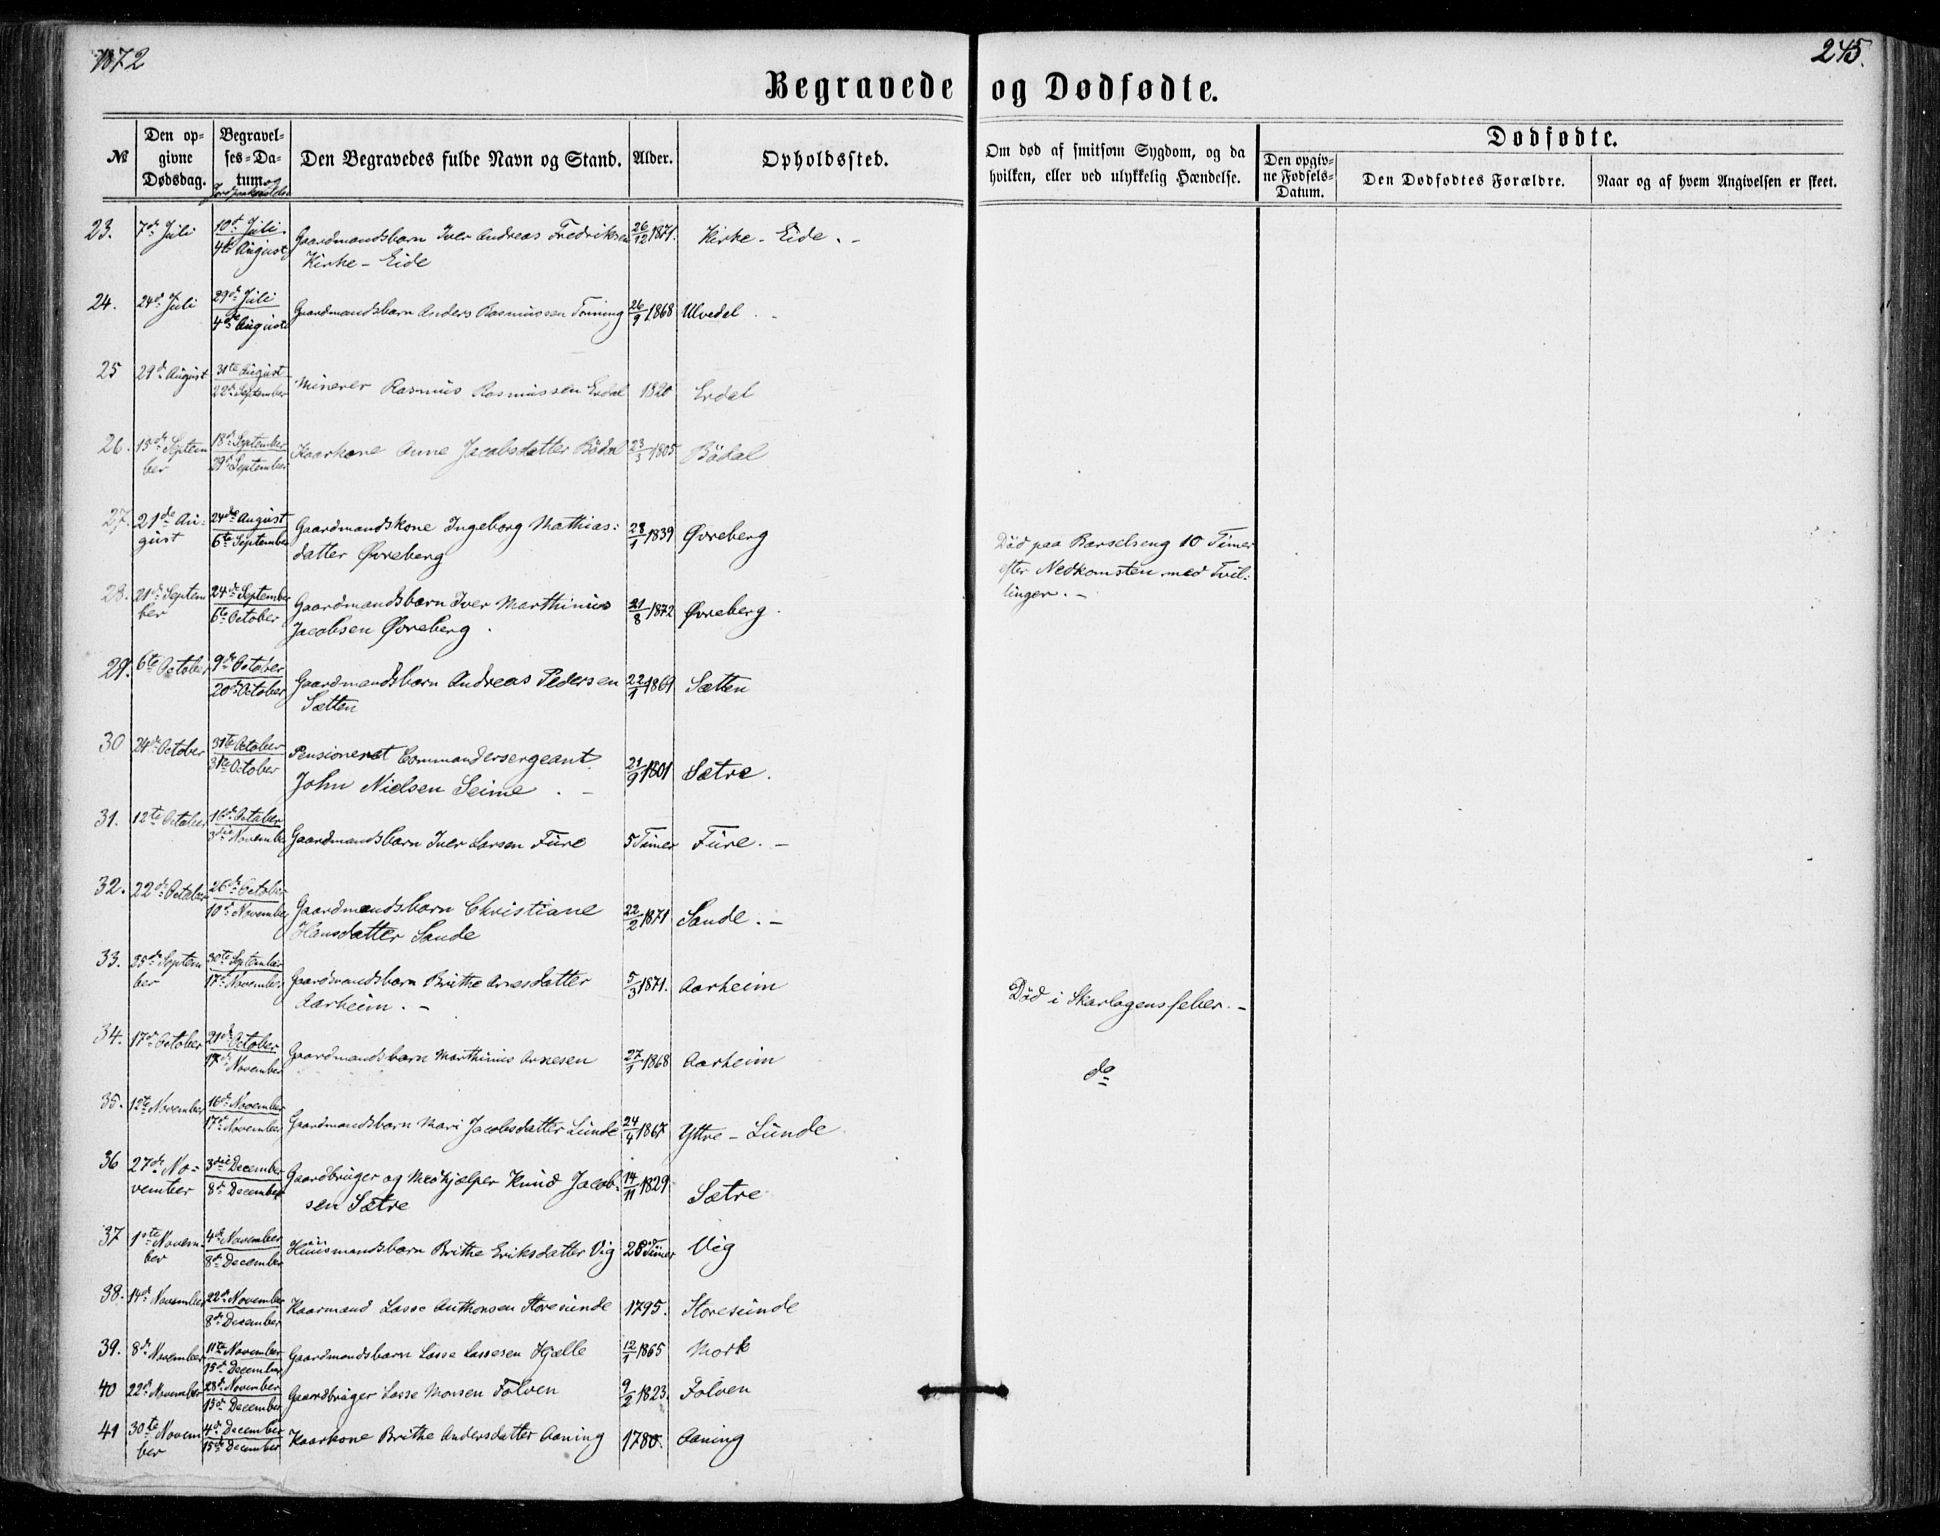 1872
245.
Begravede og Dødfødte.
№
Den opgivne Dødsdag.
Begravelses-Datum og
Den Begravedes fulde Navn og Stand.
Alder.
Opholdssted.
Om død af smitsom Sygdom, og da hvilken, eller ved ulykkelig Hændelse.
Dødfødte.
Den opgivne Fødsels-Datum.
Den Dødfødtes Forældre.
Naar og af hvem Angivelsen er skeet.
23. 7de Juli 10de Juli 4de August Gaardmandsbarn Iver Andreas Fredriksen 26/12 1871. Kirke-Eide.-
Kirke-Eide
24. 24de Juli 29de Juli 4de August Gaardmandsbarn Anders Rasmussen Tonning 26/9 1868 Ulvedal
25 29de August 31te August 22de September Minerer Rasmus Rasmussen Erdal 1820 Erdal
26. 15de September 18de September 29de September Kaarkone Anne Jacobsdatter Bödal 23/3 1805 Bödal
27. 21de August 24de August 6te September Gaardmandskone Ingeborg Mathias:
datter Øvreberg 28/1 1839 Øvreberg
Död paa Barselseng 10 Timer
efter Nedkomsten med Tvil:
linger.-
28. 21de September 24de September 6te October Gaardmandsbarn Iver Marthinus
Jacobsen Øvreberg. 21/8 1872 Øvreberg.
29. 6te October 9de October 20de October Gaardmandsbarn Andreas Pedersen
Sætten 22/1 1869 Sætten
30 24de October 31te October 31te October Pensioneret Commandersergeant
John Nielsen Seime.- 21/9 1801 Sætre.
31. 12te October 16de October 3die November Gaardmandsbarn Iver Larsen Fure 5 Timer Fure.-
32. 22de October 26de October 10de November Gaardmandsbarn Christiane
Hansdatter Sande 22/2 1871 Sande.-
33. 25de September 30te September 17de November Gaardmandsbarn Brithe Arnesdatter
Aarheim.- 5/3 1871. Aarheim Död i Skarlagensfeber.-
34. 17de October 21de October 17de November Gaardmandsbarn Marthinus Arnesen 27/1 1868 Aarheim do
35. 12te November 16de November 17de November Gaardmandsbarn Mari Jacobsdatter Lunde 24/4 1867 Yttre-Lunde
36 27de November 3die December 8de December Gaardbruger og Medhjælper Knud Jacob:
sen Sætre 14/11 1829 Sætre
37 1ste November 4de November 8de December Huusmandsbarn Brithe Eriksdatter Vig Timer Vig
38. 14de November 22de November 8de December Kaarmand Lasse Anthonsen Storesunde 1795. Storesunde
39. 8de November 11te November 15de December Gaardmandsbarn Lasse Lassesen Hjælle 12/1 1865 Mork
40 22de November 28de November 15de December Gaardbruger Lasse Monsen Folven 9/2 1823. Folven
41 30te November 4de December 15de December Kaarkone Brithe Andersdatter Aaning 1780. Aaning